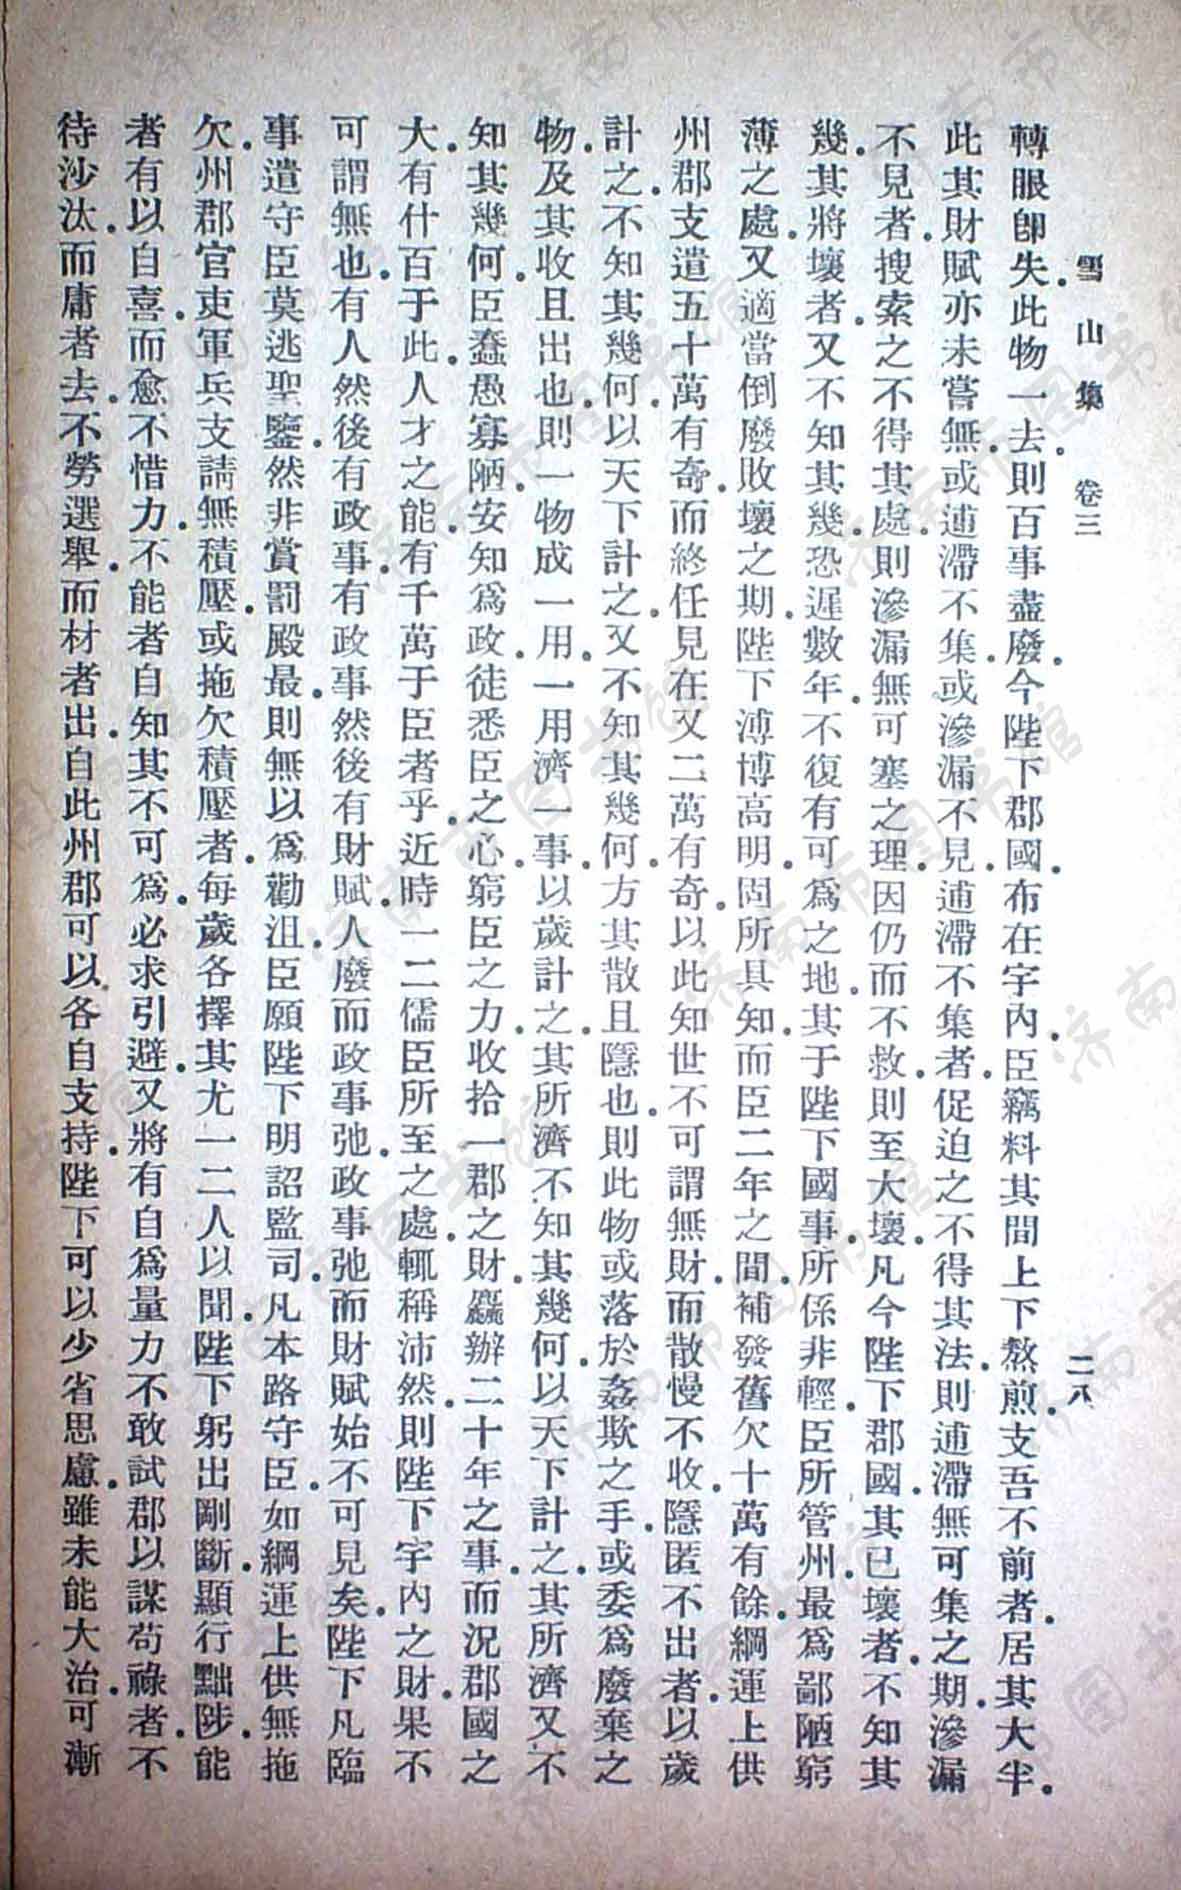 雪山集 卷三 二八
轉眼卽失.此物一去.則百事盡廢.今陛下郡國.布在宇內.臣竊料其間上下熬煎.支吾不前者.居其大半.
此其財賦亦未嘗無.或逋滯不集.或滲漏不見.逋滯不集者.促迫之不得其法.則逋滯無可集之期.滲漏
不見者.搜索之不得其處.則滲漏無可塞之理.因仍而不救.則至大壞.凡今陛下郡國.其已壞者.不知其
幾.其將壞者.又不知其幾.恐遲數年.不復有可爲之地.其于陛下國事.所係非輕.臣所管州.最爲鄙陋窮
薄之處.又適當倒廢敗壞之期.陛下溥博高明.固所具知.而臣二年之間.補發舊欠十萬有餘.綱運上供
州郡支遣五十萬有奇.而終任見在又二萬有奇.以此知世不可謂無財.而散慢不收.隱匿不出者.以歲
計之.不知其幾何.以天下計之.又不知其幾何.方其散且隱也.則此物或落於姦欺之手.或委爲廢棄之
物.及其收且出也.則一物成一用.一用濟一事.以歲計之.其所濟不知其幾何.以天下計之.其所濟又不
知其幾何.臣蠢愚寡陋.安知爲政.徒悉臣之心.窮臣之力.收拾一郡之財.麤辦二十年之事.而況郡國之
大.有什百于此.人才之能.有千萬于臣者乎.近時一二儒臣所至之處.輒稱沛然.則陛下宇內之財.果不
可謂無也.有人然後有政事.有政事然後有財賦.人廢而政事弛.政事弛而財賦始不可見矣.陛下凡臨
事遣守臣莫逃聖鑒.然非賞罰殿最.則無以爲勸沮.臣願陛下明詔監司.凡本路守臣.如綱運上供無拖
欠.州郡官吏軍兵支請無積壓.或拖欠積壓者.每歲各擇其尤一二人以聞.陛下躬出剛斷.顯行黜陟.能
者有以自喜.而愈不惜力.不能者自知其不可爲.必求引避.又將有自爲量力不敢試郡以謀苟祿者.不
待沙汰.而庸者去.不勞選舉.而材者出.自此州郡可以各自支持.陛下可以少省思慮.雖未能大治.可漸